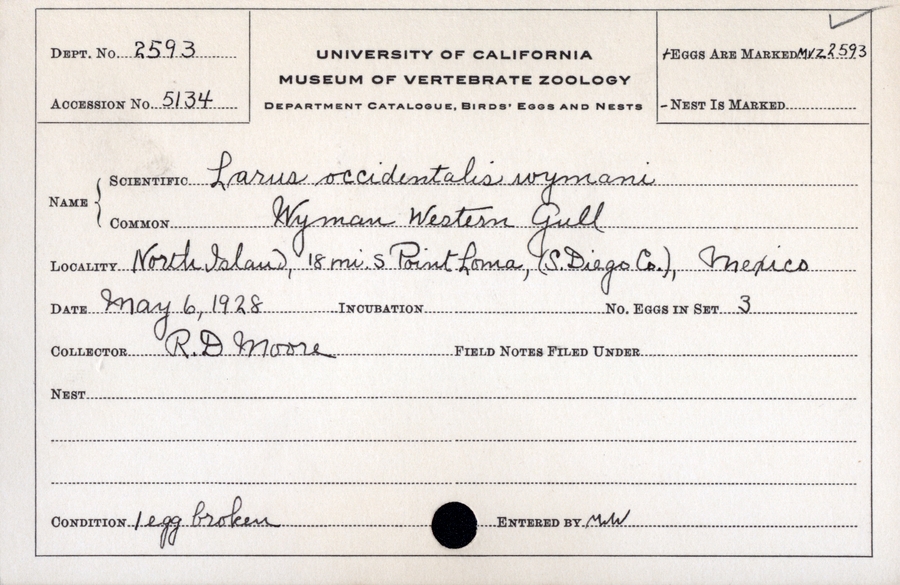 DEPT. No. 2593
ACCESSION No. 5134
UNIVERSITY OF CALIFORNIA
MUSEUM OF VERTEBRATE ZOOLOGY
DEPARTMENT CATALOGUE, BIRDS' EGGS AND NESTS
+EGGS ARE MARKED MVZ2593
-NEST IS MARKED
NAME
SCIENTIFIC Larus occidentalis wymani
COMMON Wyman Western Gull
LOCALITY North Island, 18 mi. S Point Loma, (S. Diego Co.), Mexico
DATE May 6, 1928 INCUBATION No. EGGS IN SET 3
COLLECTOR R. D Moore FIELD NOTES FILED UNDER
NEST
CONDITION 1 egg broken ENTERED BY